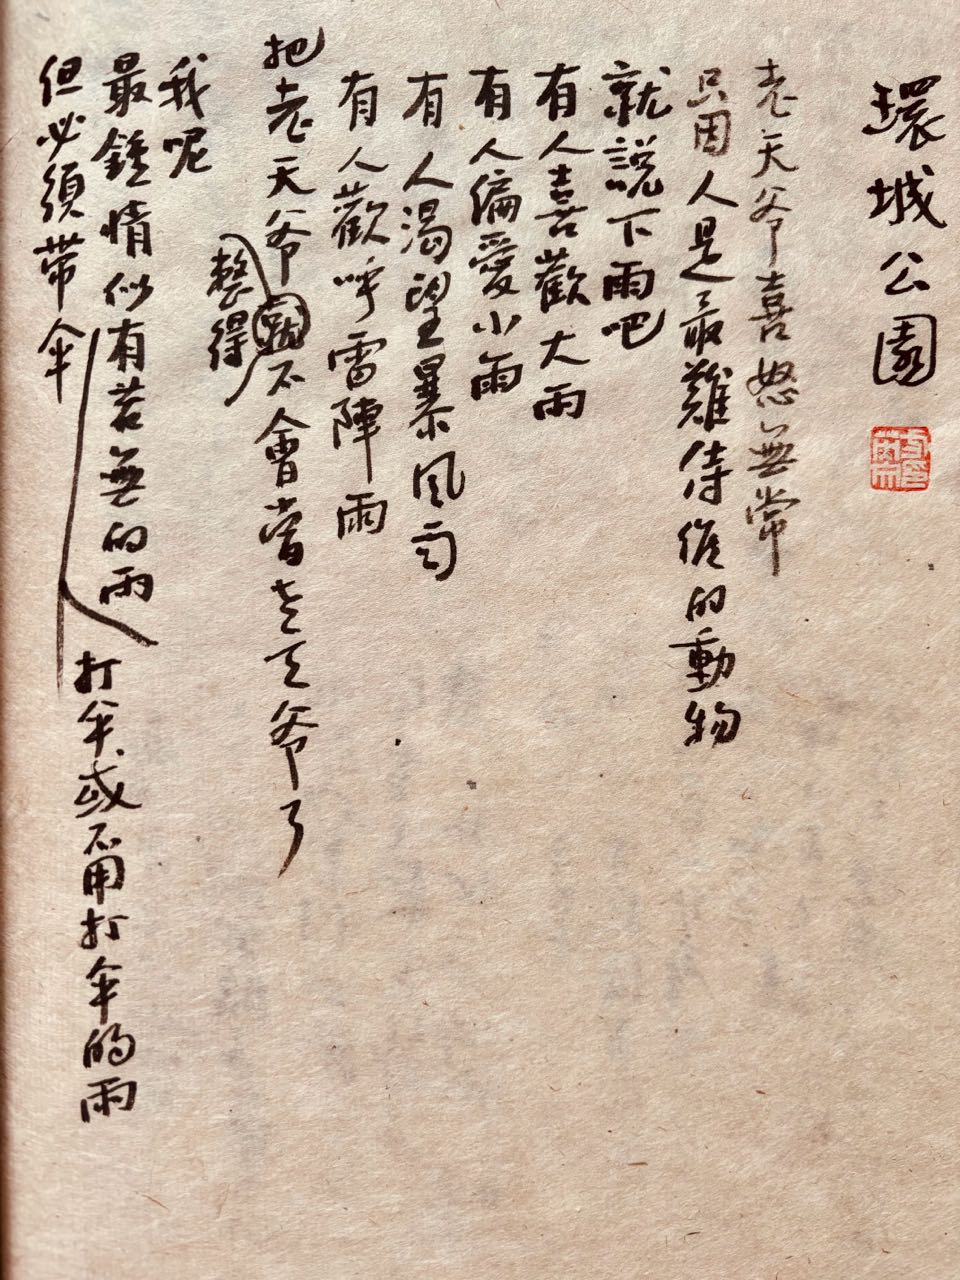 環城公園
老天爷喜怒無常
只因人是最難侍候的動物
就說下雨吧
有人喜歡大雨
有人偏愛小雨
有人渴望暴风雨
有人歡呼雷陣雨
把老天爷整得不會當老天爷了
我呢
最鍾情似有若無的雨
打伞或不用打伞的雨
但必須带伞